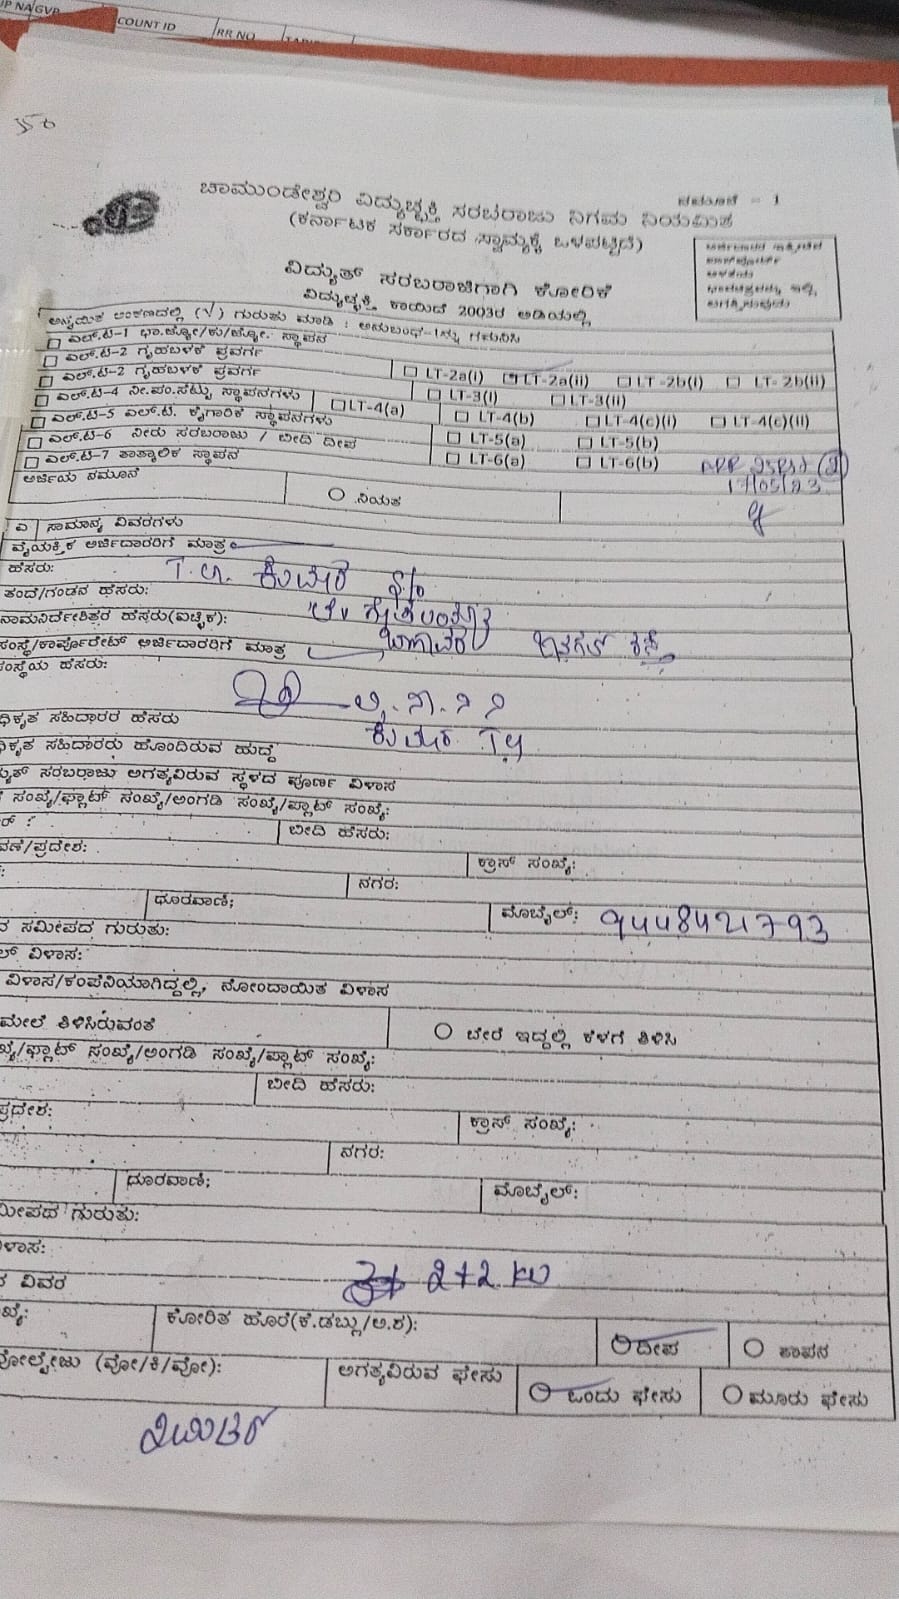 COUNT ID RR NO
ನಮೂನೆ - 1
ಚಾಮುಂಡೇಶ್ವರಿ ವಿದ್ಯುಚ್ಛಕ್ತಿ ಸರಬರಾಜು ನಿಗಮ ನಿಯಮಿತ
(ಕರ್ನಾಟಕ ಸರ್ಕಾರದ ಸ್ವಾಮ್ಯಕ್ಕೆ ಒಳಪಟ್ಟಿದೆ)
ವಿದ್ಯುತ್ ಸರಬರಾಜಿಗಾಗಿ ಕೋರಿಕೆ
ವಿದ್ಯುಚ್ಛಕ್ತಿ ಕಾಯಿದೆ 2003ರ ಅಡಿಯಲ್ಲಿ
ಅನ್ವಯಿತ ಅಂಕಣದಲ್ಲಿ (√) ಗುರುತು ಮಾಡಿ : ಅನುಬಂಧ-1ನ್ನು ಗಮನಿಸಿ
ಎಲ್.ಟಿ-1 ಭಾ.ಜ್ಯೋ/ಕು/ಜ್ಯೋ. ಸ್ಥಾಪನ
ಎಲ್.ಟಿ-2 ಗೃಹಬಳಕೆ ಪ್ರವರ್ಗ
ಎಲ್.ಟಿ-2 ಗೃಹಬಳಕೆ ಪ್ರವರ್ಗ LT-2a(i) LT-2a(ii) LT-2b(i) LT-2b(ii)
ಎಲ್.ಟಿ-4 ನೀ.ಪಂ.ಸೆಟ್ಟು ಸ್ಥಾಪನಗಳು LT-3(i) LT-3(ii)
ಎಲ್.ಟಿ-5 ಎಲ್.ಟಿ. ಕೈಗಾರಿಕೆ ಸ್ಥಾಪನಗಳು LT-4(a) LT-4(b) LT-4(c)(i) LT-4(c)(ii)
ಎಲ್.ಟಿ-6 ನೀರು ಸರಬರಾಜು / ಬೀದಿ ದೀಪ LT-5(a) LT-5(b)
ಎಲ್.ಟಿ-7 ತಾತ್ಕಾಲಿಕ ಸ್ಥಾಪನ LT-6(a) LT-6(b)
ಅರ್ಜಿಯ ನಮೂನೆ ನಿಯತ 17/05/23
ಎ ಸಾಮಾನ್ಯ ವಿವರಗಳು
ವೈಯಕ್ತಿಕ ಅರ್ಜಿದಾರರಿಗೆ ಮಾತ್ರ
ಹೆಸರು: ಕುಮಾರ S/o
ತಂದೆ/ಗಂಡನ ಹೆಸರು:
ನಾಮನಿರ್ದೇಶಿತರ ಹೆಸರು(ಐಚ್ಛಿಕ):
ಸಂಸ್ಥೆ/ಕಾರ್ಪೊರೇಟ್ ಅರ್ಜಿದಾರರಿಗೆ ಮಾತ್ರ
ಸಂಸ್ಥೆಯ ಹೆಸರು:
ಧಿಕೃತ ಸಹಿದಾರರ ಹೆಸರು
ಧಿಕೃತ ಸಹಿದಾರರು ಹೊಂದಿರುವ ಹುದ್ದೆ ಕುಮಾರ
ಯುತ್ ಸರಬರಾಜು ಅಗತ್ಯವಿರುವ ಸ್ಥಳದ ಪೂರ್ಣ ವಿಳಾಸ
ಸಂಖ್ಯೆ/ಫ್ಲಾಟ್ ಸಂಖ್ಯೆ/ಅಂಗಡಿ ಸಂಖ್ಯೆ/ಪ್ಲಾಟ್ ಸಂಖ್ಯೆ:
ಬೀದಿ ಹೆಸರು:
ವಣೆ/ಪ್ರದೇಶ: ಕ್ರಾಸ್ ಸಂಖ್ಯೆ:
ನಗರ:
ಧೂರವಾಣಿ; ಮೊಬೈಲ್: 9448421793
ಸಮೀಪದ ಗುರುತು:
ಲ್ ವಿಳಾಸ:
ವಿಳಾಸ/ಕಂಪೆನಿಯಾಗಿದ್ದಲ್ಲಿ, ನೋಂದಾಯಿತ ವಿಳಾಸ
ಮೇಲೆ ತಿಳಿಸಿರುವಂತೆ ಬೇರೆ ಇದ್ದಲ್ಲಿ ಕೆಳಗೆ ತಿಳಿಸಿ
ಖ್ಯೆ/ಫ್ಲಾಟ್ ಸಂಖ್ಯೆ/ಅಂಗಡಿ ಸಂಖ್ಯೆ/ಪ್ಲಾಟ್ ಸಂಖ್ಯೆ:
ಬೀದಿ ಹೆಸರು:
ಪ್ರದೇಶ: ಕ್ರಾಸ್ ಸಂಖ್ಯೆ:
ನಗರ:
ಧೂರವಾಣಿ; ಮೊಬೈಲ್:
ಮೀಪದ ಗುರುತು:
ಳಾಸ:
ವಿವರ 2+2 KW
ಖ್ಯೆ: ಕೋರಿತ ಹೊರೆ(ಕೆ.ಡಬ್ಲ್ಯು/ಅ.ಶ): ದೀಪ ಶಾಖನ
ವೋಲ್ಟೇಜು (ವೋ/ಕಿ/ವೋ): ಅಗತ್ಯವಿರುವ ಫೇಸು ಒಂದು ಫೇಸು ಮೂರು ಫೇಸು